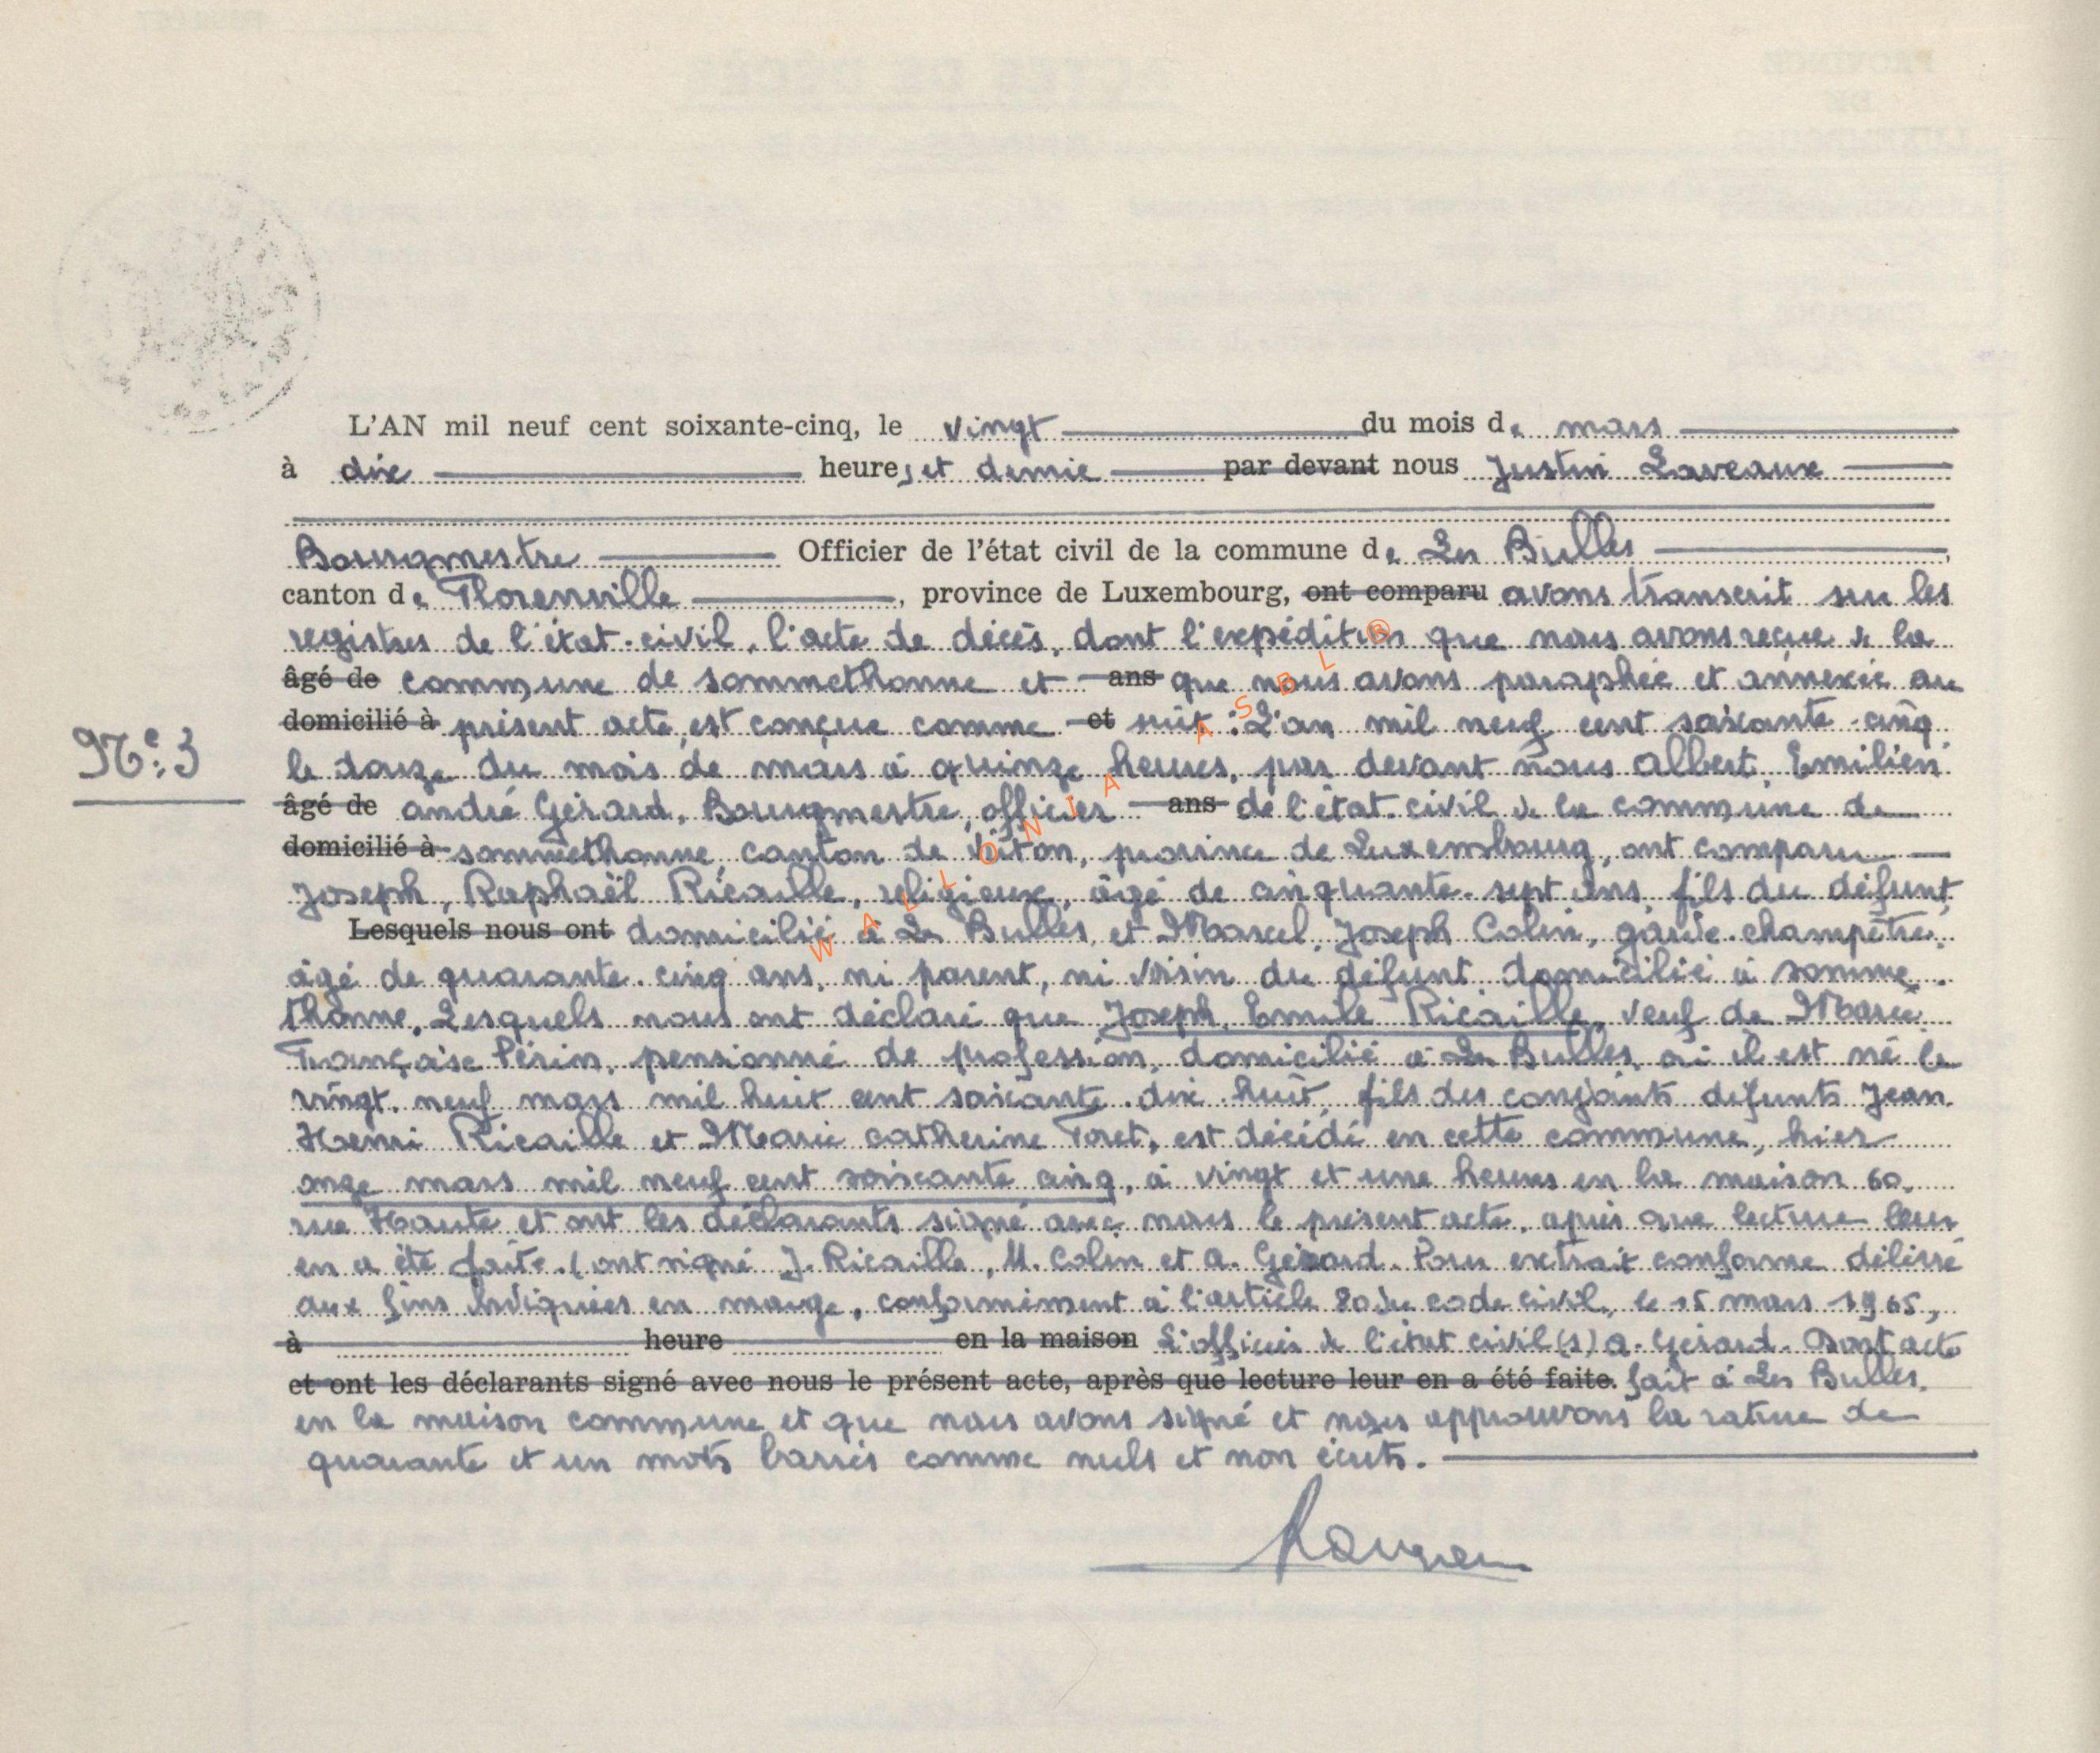 L'AN mil neuf cent soixante-cinq, le vingt du mois de mars
à dix heures et demie par devant nous Justin Laveaux
Bourgmestre Officier de l'état civil de la commune de Les Bulles,
canton de Florenville, province de Luxembourg, ont comparu avons transcrit sur les
registres de l'état-civil, l'acte de décès, dont l'expédition que nous avons reçue de la
âgé de commune de Sommethonne et ans que nous avons paraphée et annexée au
domicilié à présent acte, est conçue comme et suit : L'an mil neuf cent soixante-cinq
N° 3
le douze du mois de mars à quinze heures, par devant nous Albert, Emilien
âgé de André Gérard, Bourgmestre, officier ans de l'état-civil de la commune de
domicilié à Sommethonne, canton de Virton, province de Luxembourg, ont comparu
Joseph, Raphaël Ricaille, religieux, âgé de cinquante-sept ans, fils du défunt,
Lesquels nous ont domicilié à Les Bulles, et Marcel, Joseph Colin, garde-champêtre,
âgé de quarante-cinq ans, ni parent, ni voisin du défunt, domicilié à Somme-
thonne. Lesquels nous ont déclaré que Joseph, Emile Ricaille, veuf de Marie
Françoise Périn, pensionné de profession, domicilié à Les Bulles, où il est né le
vingt-neuf mars mil huit cent soixante-dix-huit, fils des conjoints défunts Jean
Henri Ricaille et Marie Catherine Toret, est décédé en cette commune, hier
onze mars mil neuf cent soixante cinq, à vingt et une heures en la maison 60,
rue Haute et ont les déclarants signé avec nous le présent acte, après que lecture leur
en a été faite. (ont signé J. Ricaille, M. Colin et A. Gérard. Pour extrait conforme délivré
aux fins indiquées en marge, conformément à l'article 80 du code civil, le 15 mars 1965,
à heure en la maison L'officier de l'état civil (s) A. Gérard. Dont acte
et ont les déclarants signé avec nous le présent acte, après que lecture leur en a été faite. fait à Les Bulles,
en la maison commune et que nous avons signé et nous approuvons la rature de
quarante et un mots barrés comme nuls et non écrits.
WALLONIA ASBL ®